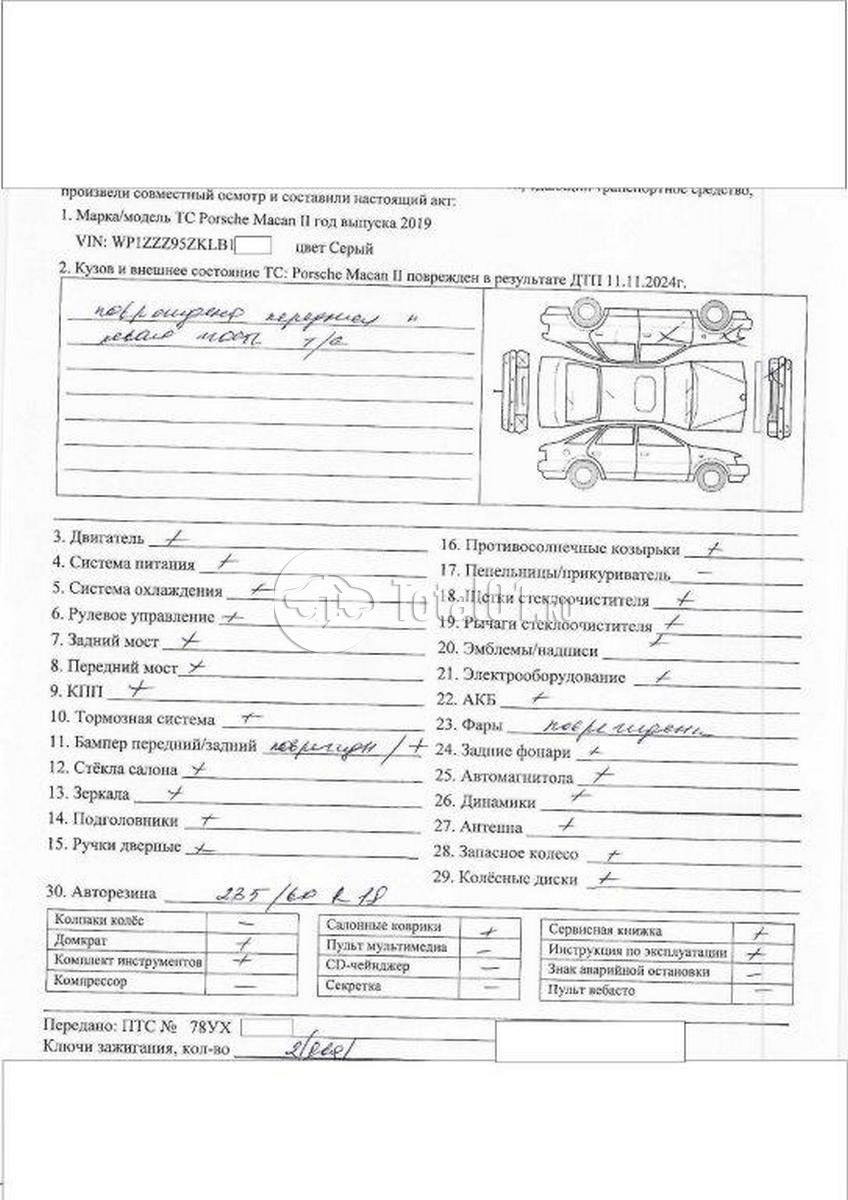 произвели совместный осмотр и составили настоящий акт:
транспортное средство,
1. Марка/модель ТС Porsche Macan II год выпуска 2019
VIN: WP1ZZZ95ZKLB1 цвет Серый
2. Кузов и внешнее состояние ТС: Porsche Macan II поврежден в результате ДТП 11.11.2024г.
передняя и
левая т/с
3. Двигатель +
4. Система питания +
5. Система охлаждения +
6. Рулевое управление +
7. Задний мост +
8. Передний мост +
9. КПП +
10. Тормозная система +
11. Бампер передний/задний / +
12. Стёкла салона +
13. Зеркала +
14. Подголовники +
15. Ручки дверные +
16. Противосолнечные козырьки +
17. Пепельницы/прикуриватель –
18. Щетки стеклоочистителя +
19. Рычаги стеклоочистителя +
20. Эмблемы/надписи +
21. Электрооборудование +
22. АКБ +
23. Фары
24. Задние фонари +
25. Автомагнитола +
26. Динамики +
27. Антенна +
28. Запасное колесо +
29. Колёсные диски +
30. Авторезина 235/60 R 18
Колпаки колёс –
Домкрат +
Комплект инструментов +
Компрессор –
Салонные коврики +
Пульт мультимедиа –
CD-чейнджер –
Секретка –
Сервисная книжка +
Инструкция по эксплуатации +
Знак аварийной остановки –
Пульт вебасто –
Передано: ПТС № 78УХ
Ключи зажигания, кол-во 2(два)
Total01.ru